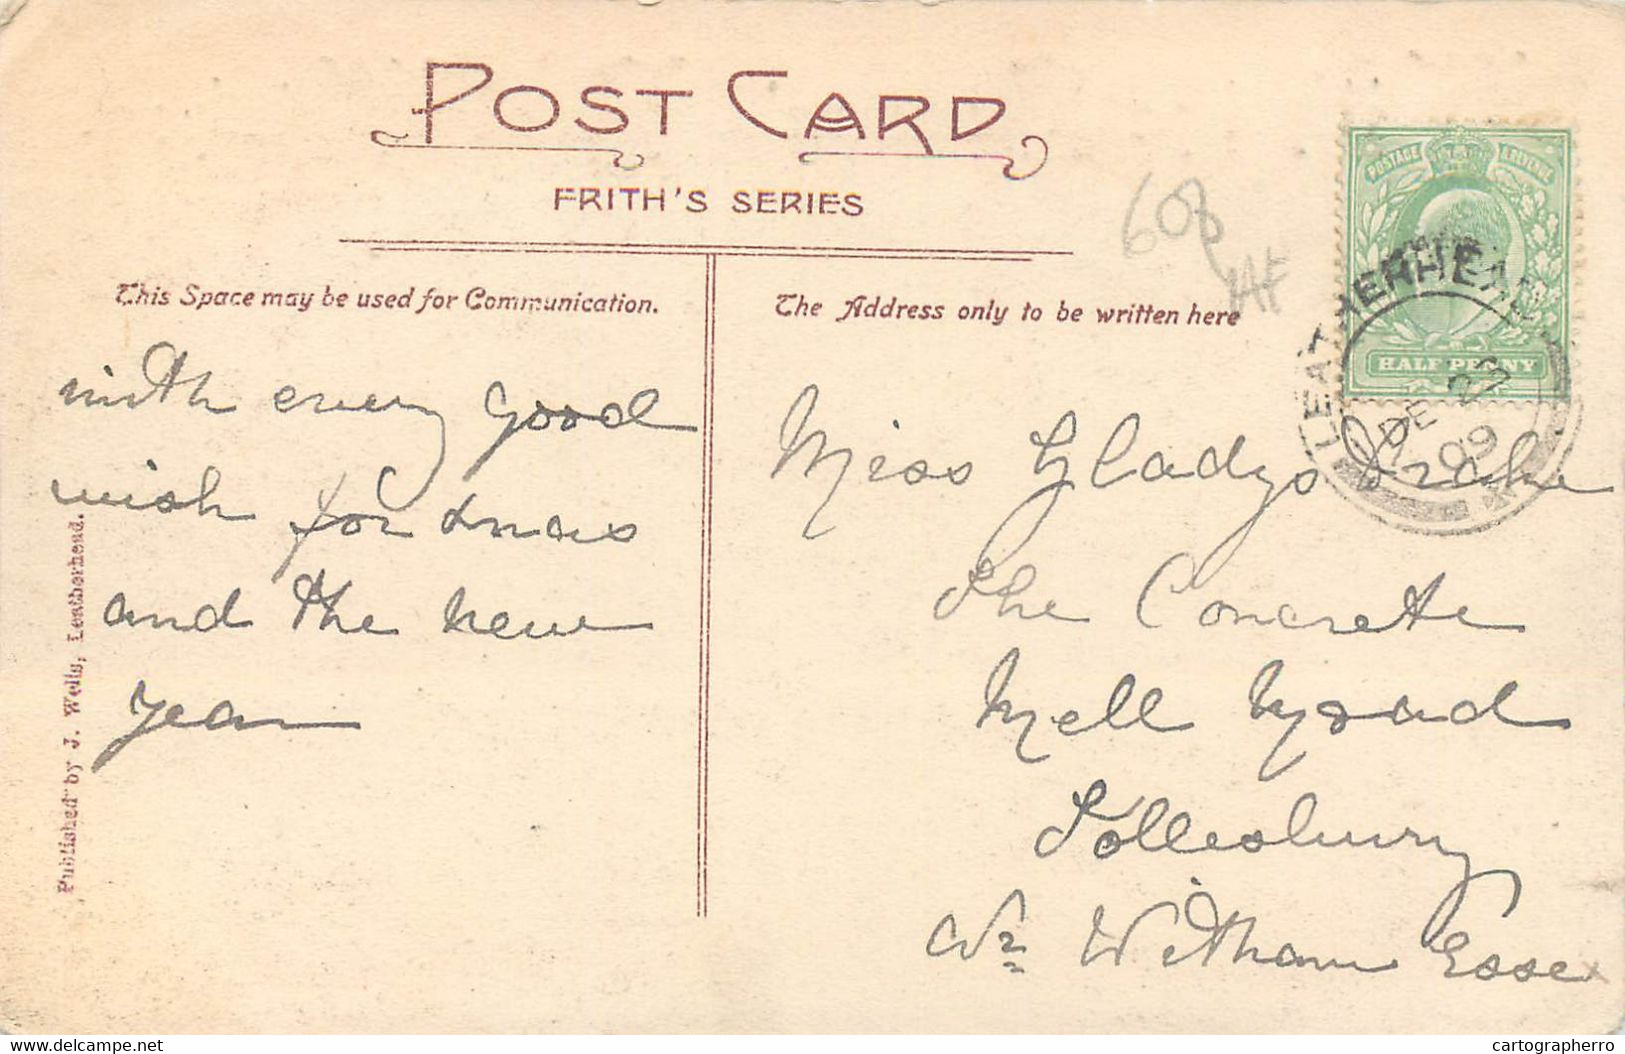 POST CARD
FRITH'S SERIES
This Space may be used for Communication.
The Address only to be written here
608
POSTAGE & REVENUE
HALF PENNY
LEATHERHEAD
DE 22
09
with every good
wish for Xmas
and the new
year
Miss Gladys Drake
The Concrete
Mell Road
Tollesbury
Nr Witham Essex
Published by J. Wells, Leatherhead.
www.delcampe.net
cartographerro